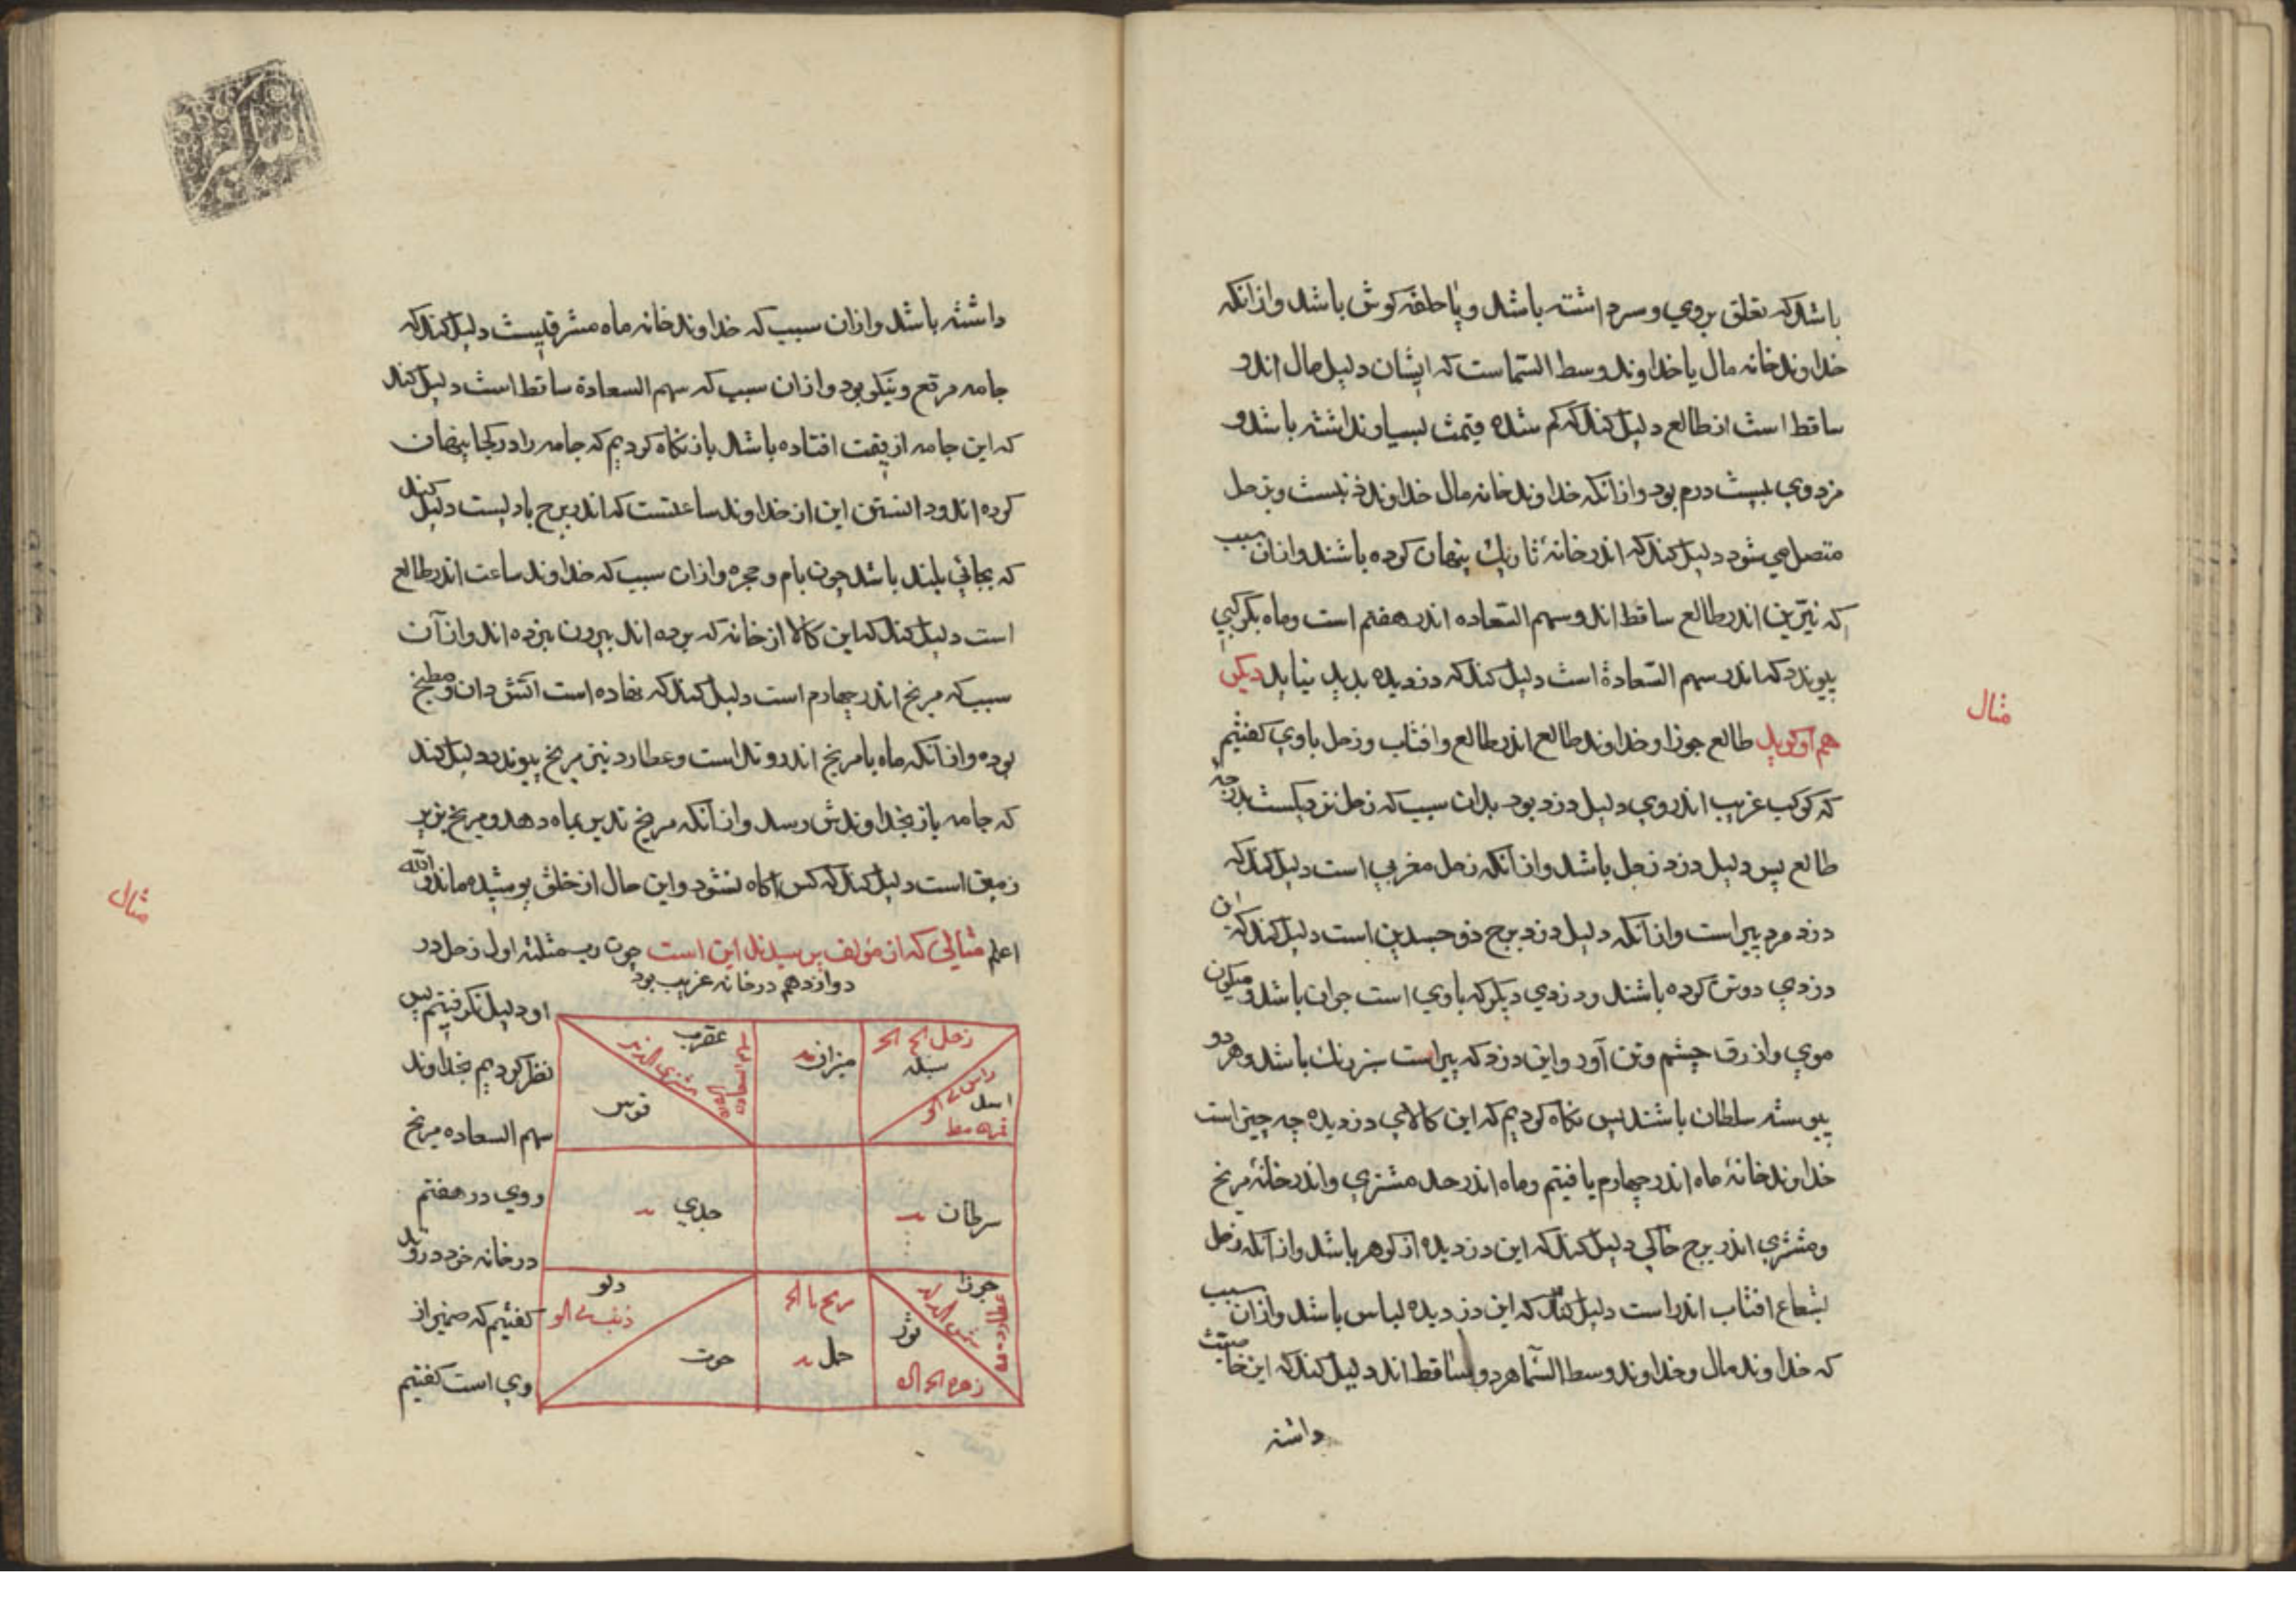 باشد که تعلق بروي و سر داشته باشد و یا حلقه کوش باشد و ازانکه
خداوند خانه مال یا خداوند وسط السماست که ایشان دلیل مال اند و
ساقط است از طالع دلیل کند که کم شده قیمت بسیار نداشته باشد و
مزدوي بیست درم بود و ازانکه خداوند خانه مال خداوند ذنبست و بزحل
متصل می شود دلیل کند که اندر خانهٔ تاریک پنهان کرده باشند و ازان سبب
که نیّرین اندر طالع ساقط اند و سهم السّعاده اندر هفتم است و ماه بکوکبي
پیوندد که اندر سهم السّعادة است دلیل کند که دزدیده بدید نیاید دیکر
مثال
هم او کوید طالع جوزا و خداوند طالع اندر طالع و افتاب و زحل باوي کفتیم
که کوکب غریب اندروي دلیل دزد بود بدان سبب که زحل نزدیکست بدرجهٔ
طالع پس دلیل دزد زحل باشد و ازانکه زحل مغربي است دلیل کند که
دزد مرد پیر است و ازانکه دلیل دزد برج ذو جسدین است دلیل کند که این
دزدي دو تن کرده باشند و دزدي دیکر که باوي است جوان باشد و میکون
موي و ازرق چشم و تن آور و این دزد که پیر است سبز رنک باشد و هر دو
پیوسته سلطان باشند پس نکاه کردیم که این کالاي دزدیده چه چیز است
خداوند خانهٔ ماه اندر چهارم یافتیم و ماه اندر حد مشتري و اندر خانهٔ مریخ
و مشتري اندر برج خاکي دلیل کند که این دزدیده از کوهر باشد و ازانکه زحل
بشعاع افتاب اندر است دلیل کند که این دزدیده لباس باشد و ازان سبب
که خداوند مال و خداوند وسط السّما هر دو ساقط اند دلیل کند که این خا
داشته
داشته باشد و ازان سبب که خداوند خانه ماه مشرقیست دلیل کند که
جامه مرتفع و نیکو بود و ازان سبب که سهم السعادة ساقط است دلیل کند
که این جامه از قیمت افتاده باشد باز نکاه کردیم که جامه را در کجا پنهان
کرده اند و دانستن این از خداوند ساعتست که اندر برج بادیست دلیل کند
که بجائي بلند باشد چون بام و حجره و ازان سبب که خداوند ساعت اندر طالع
است دلیل کند که این کالا از خانه که برده اند بیرون نبرده اند و از آن
سبب که مریخ اندر چهارم است دلیل کند که نهاده است اتش دان و مطبخ
بوده و ازانکه ماه با مریخ اندر وتد است و عطارد نیز بمریخ پیوندد دلیل کند
که جامه باز بخداوندش رسد و ازانکه مریخ تدبیر بماه دهد و مریخ بزیر
زمین است دلیل کند که کس اکاه نشود و این حال از خلق پوشیده ماند والله
مثال
اعلم مثالي که از مؤلف پرسیدند این است چون رب مثلثه اول زحل در
دوازدهم در خانه غریب بود
او دلیل نکرفتیم پس
نظر کردیم بخداوند
سهم السعاده مریخ
و وي در هفتم
در خانه خود در وتد
کفتیم که ضمیر از
وي است کفتیم
زحل
سنبله
راس
اسد
میزان
عقرب
سهم السعاده
مشتري
قوس
سرطان
جدي
جوزا
ثور
زهره
مریخ
حمل
دلو
ذنب
حوت